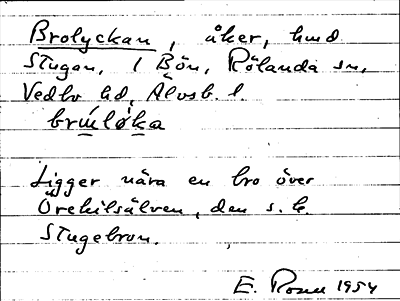 Brolyckan, åker, hmd.
Stugan, 1 Bön, Rölanda sn,
Vedbo hd, Älvsb. l.
brɯ̀løka
Ligger nära en bro över
Örekilsälven, den s. k.
Stugebron.
E. Rosen 1954